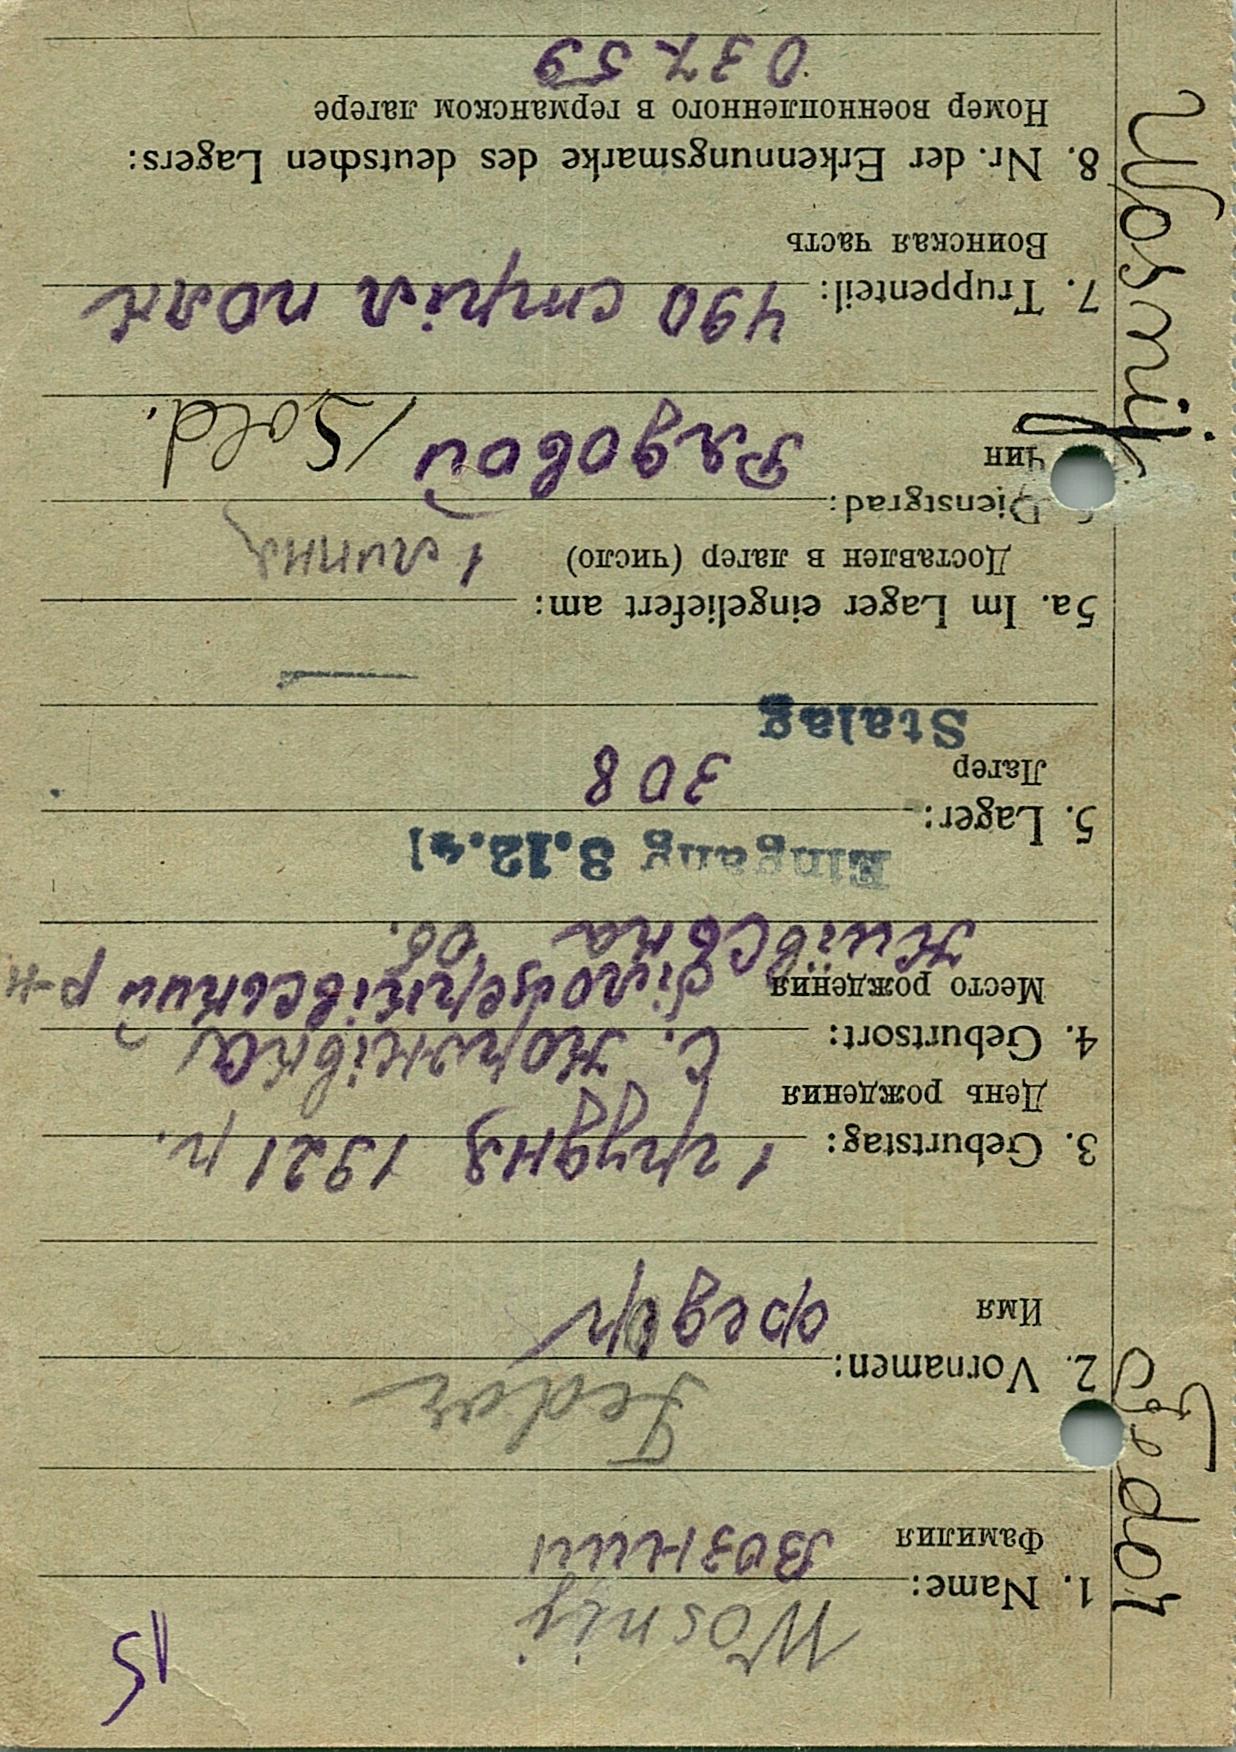 15
Wosnij
1. Name:
Фамилия
Возний
Fedor
2. Vornamen:
Имя
Федор
3. Geburtstag: 1 грудня 1921 р.
День рождения
с. Коржівка
4. Geburtsort:
Место рождения
Білоцерківський р-н
Київська об.
Eingang 3.12.41
5. Lager:
Лагер
308
Stalag
5a. Im Lager eingeliefert am:
Доставлен в лагер (число)
1 липня
Dienstgrad:
Чин
Рядовой /Sold.
7. Truppenteil: 490 стріл полк
Воинская часть
8. Nr. der Erkennungsmarke des deutschen Lagers:
Номер военнопленного в германском лагере
Fedor
Wosnij